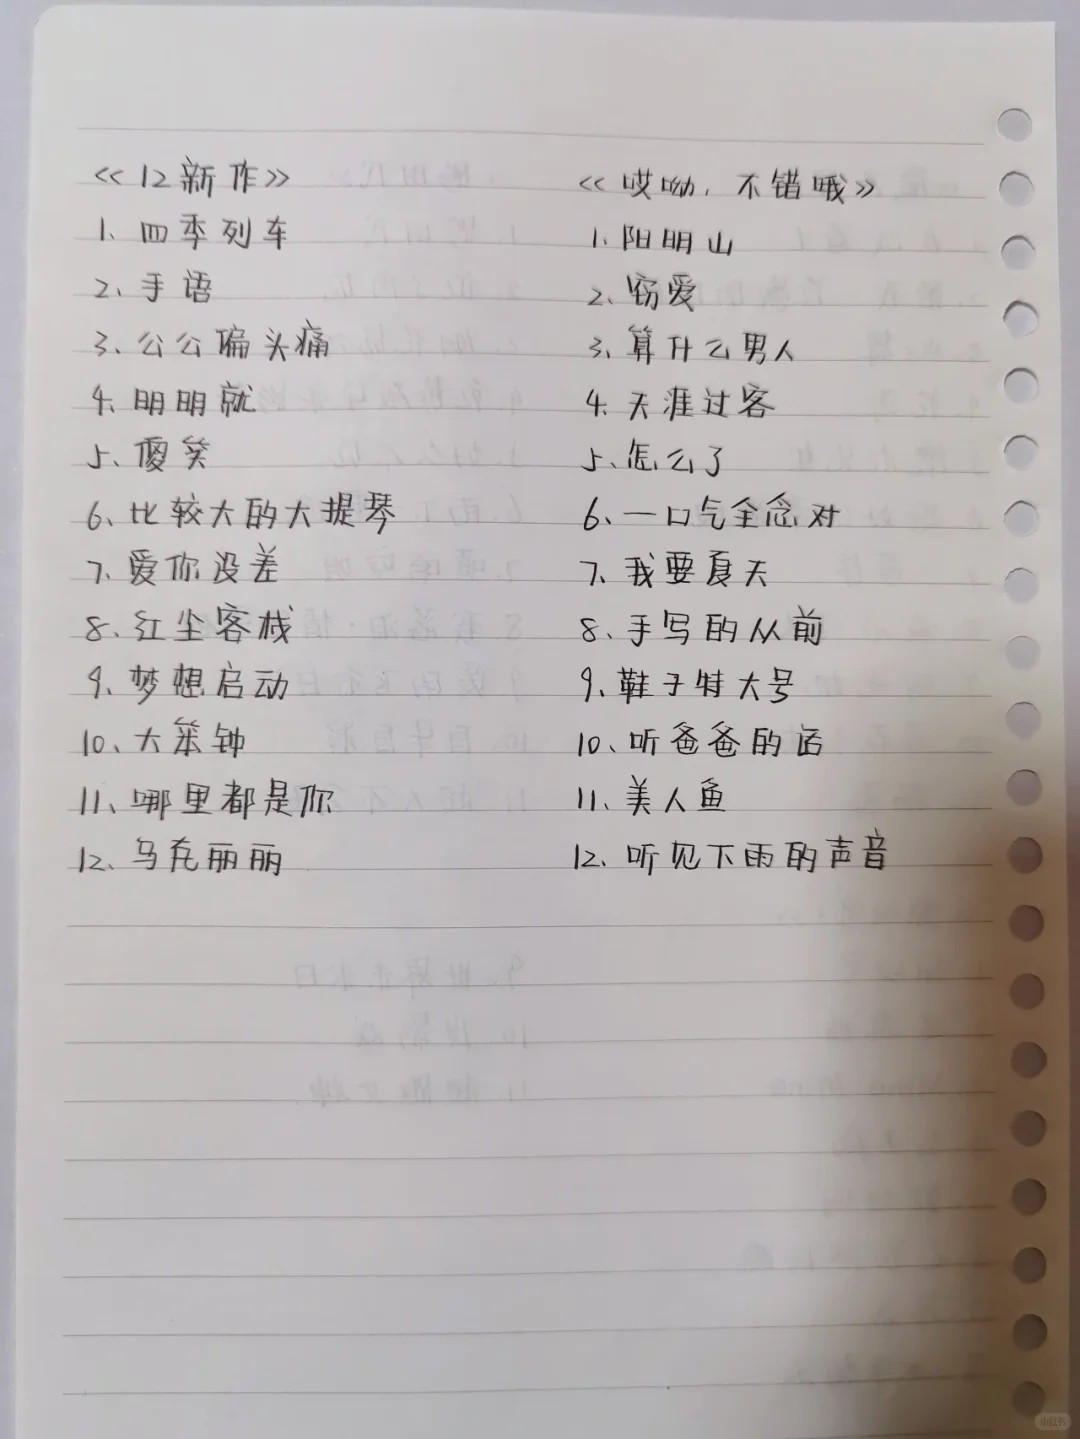 《12新作》
1、四季列车
2、手语
3、公公偏头痛
4、明明就
5、傻笑
6、比较大的大提琴
7、爱你没差
8、红尘客栈
9、梦想启动
10、大笨钟
11、哪里都是你
12、乌克丽丽
《哎呦,不错哦》
1、阳明山
2、窃爱
3、算什么男人
4、天涯过客
5、怎么了
6、一口气全念对
7、我要夏天
8、手写的从前
9、鞋子特大号
10、听爸爸的话
11、美人鱼
12、听见下雨的声音
小红书